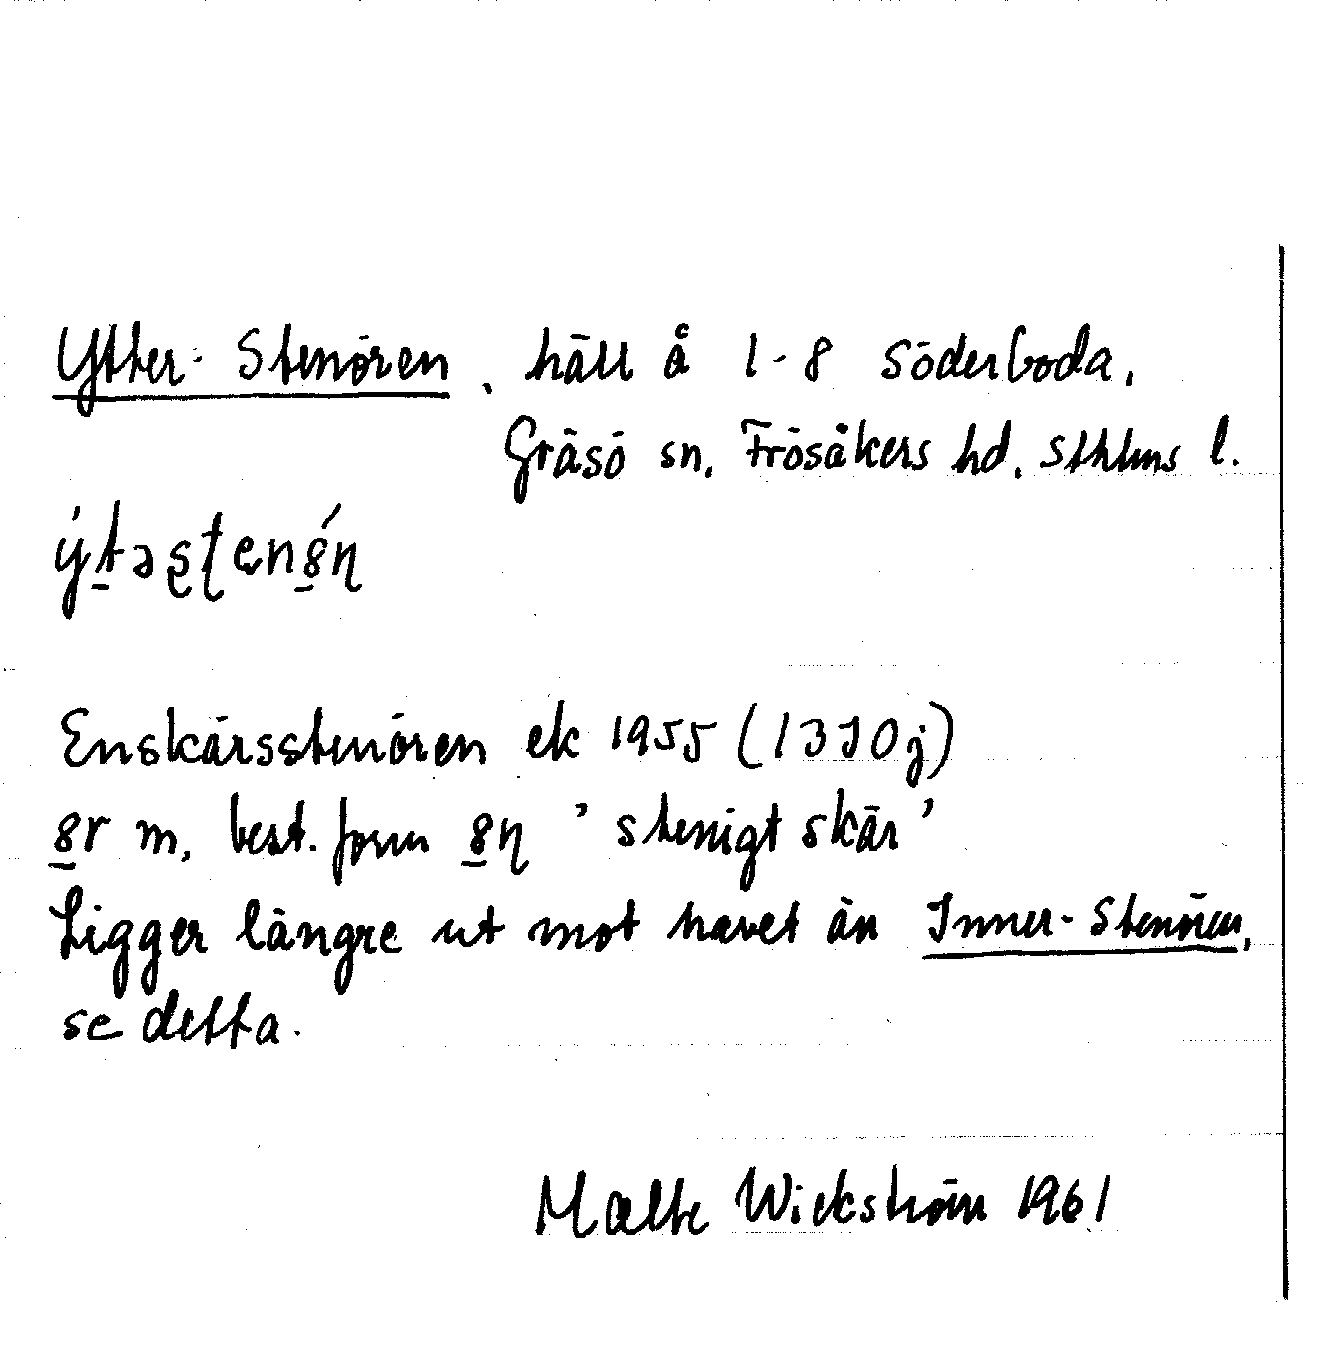 Ytter-Stenören, häll å 1-8 Söderboda,
Gräsö sn, Frösåkers hd, Sthlms l.
ẏ́t̲əʂʈenȣ̲́ɳ
Enskärsstenören ek 1955 (13I0j)
ȣ̲r m, best. form ȣ̲ɳ 'stenigt skär'
Ligger längre ut mot havet än Inner-Stenören,
se detta.
Malte Wickström 1961